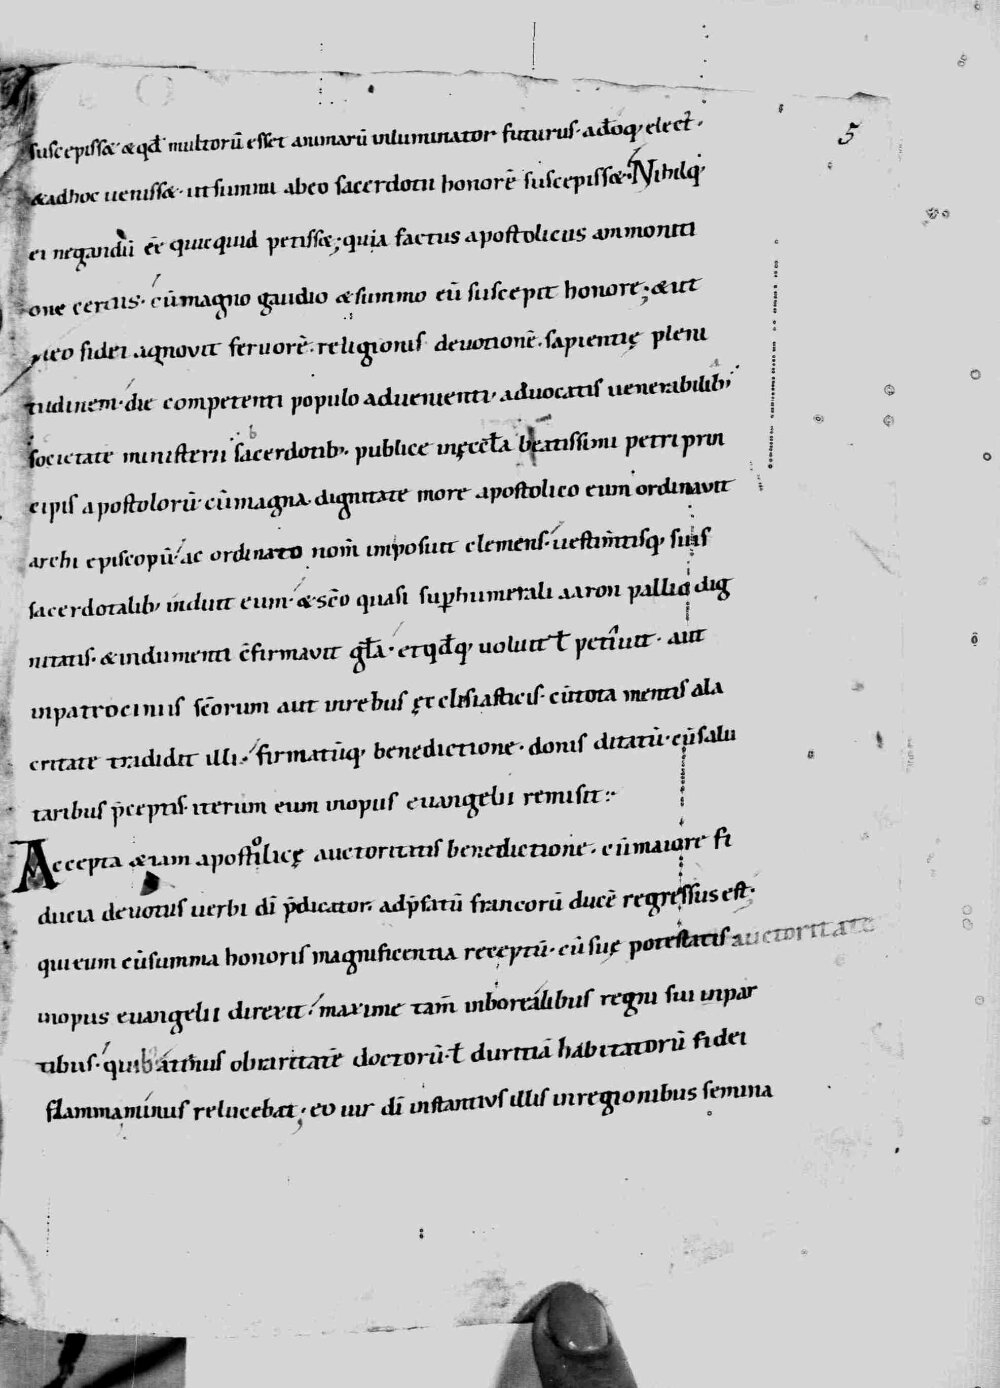 5
suscepisse· & qd̄ multorū esset animarū inluminator futurus· a d̄o q; elect᷒·
& ad hoc uenisse· ut summi ab eo sacerdotii honorē suscepisse· Nihilq;
ei negandū ēē quicquid petisse; quia factus apostolicus ammoniti
one certus· cū magno gaudio & summo eū suscepit honore; & ut
in eo fidei agnovit feruorē· religionis deuotionē· sapientię pleni
tudinem· die competenti populo advenienti· advocatis venerabilib;
societate ministerii sacerdotib; publice in ęcclā beatissimi petri prin
cipis apostolorū· cū magna dignitate more apostolico eum ordinavit
archi episcopū· ac ordinato nom̄ imposuit clemens· uestim̄tisq; suis
sacerdotalib; induit eum· & sc̄o quasi sup̄humerali aaron pallio dig
nitatis· & indumenti c̄firmavit gl̄a· et qd̄q; uoluit ł petiuit· aut
in patrociniis sc̄orum aut in rebus ęcclesiasticis· cū tota mentis ala
critate tradidit illi· firmatūq; benedictione· donis ditatū· cū salu
taribus p̄ceptis· iterum eum in opus evangelii remisit:·
Accepta &iam apostolicę auctoritatis benedictione· cū maiore fi
ducia devotus uerbi dī p̄dicator· ad p̄fatū francorū ducē regressus est·
qui eum cū summa honoris magnificentia receptū· cū suę potestatis auctoritate
in opus evangelii direxit· maxime tam̄ in borealibus regni sui in par
tibus· quib; atin̄us ob raritatē doctorū· ł duritiā habitatorū fidei
flamma minus relucebat; eo uir dī instantius illis in regionibus semina